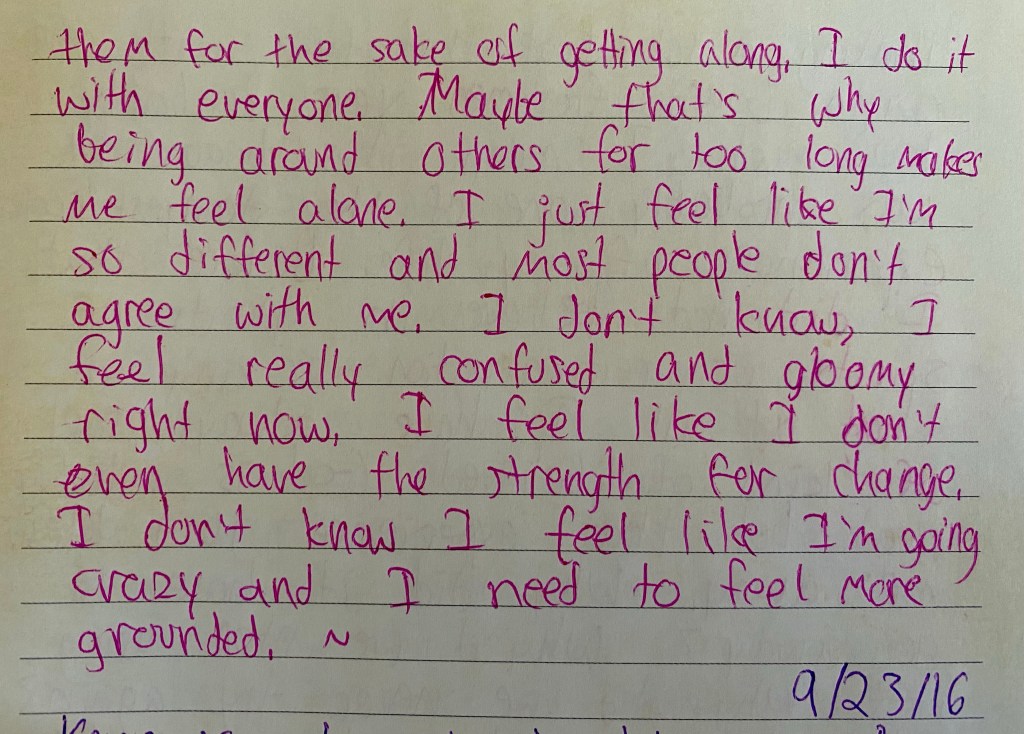 them for the sake of getting along. I do it
with everyone. Maybe that's why
being around others for too long makes
me feel alone. I just feel like I'm
so different and most people don't
agree with me. I don't know, I
feel really confused and gloomy
right now, I feel like I don't
even have the strength for change.
I don't know I feel like I'm going
crazy and I need to feel more
grounded. ~
9/23/16